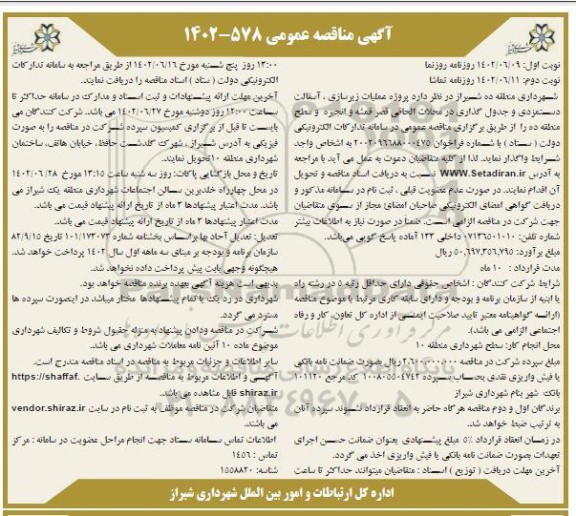 آگهی مناقصه عمومی ۵۷۸-۱۴۰۲
نوبت اول: ۱۴۰۲/۰۶/۰۹ روزنامه روزنما
نوبت دوم: ۱۴۰۲/۰۶/۱۱ روزنامه تماشا
شهرداری منطقه ده شیراز در نظر دارد پروژه عملیات زیرسازی ، آسفالت
دستمزدی و جدول گذاری در محلات الحاقی قصر قمشه و انجیره و سطح
منطقه ده را از طریق برگزاری مناقصه عمومی در سامانه تدارکات الکترونیکی
دولت ( ستاد ) با شماره فراخوان ۲۰۰۲۰۹۶۶۸۸۰۰۰۴۷۵ به اشخاص واجد
شرایط واگذار نماید. لذا از کلیه متقاضیان دعوت به عمل می آید با مراجعه
به آدرس WWW.Setadiran.ir نسبت به دریافت اسناد مناقصه و تحویل
آن اقدام نمایند. در صورت عدم عضویت قبلی ، ثبت نام در سامانه مذکور و
دریافت گواهی امضای الکترونیکی صاحبان امضای مجاز از سوی متقاضیان
جهت شرکت در مناقصه الزامی است. ضمنا در صورت نیاز به اطلاعات بیشتر
شماره تلفن: ۰۷۱۳۶۵۰۱۰۱۰ داخلی ۱۳۳ آماده پاسخ گویی می‌باشد.
مبلغ برآورد: ۵۰,۶۹۷,۳۵۶,۷۹۵ ریال
مدت قرارداد : ۱۰ ماه
شرایط شرکت کنندگان : اشخاص حقوقی دارای حداقل رتبه ۵ در رشته راه
یا ابنیه از سازمان برنامه و بودجه و دارای سابقه کاری مرتبط با موضوع مناقصه
(ارائه گواهینامه معتبر تایید صلاحیت ایمنی از اداره کل تعاون، کار و رفاه
اجتماعی الزامی می باشد).
محل انجام کار: سطح شهرداری منطقه ۱۰
مبلغ سپرده شرکت در مناقصه ۲,۶۰۰,۰۰۰,۰۰۰ ریال بصورت ضمانت نامه بانکی
یا فیش واریزی نقدی بحساب سپرده ۱۰۰۸۰۵۵۰۴۷۴۲ کد مرجع ۱۰۱۱۲۰
بانک شهر بنام شهرداری شیراز
برندگان اول و دوم مناقصه هرگاه حاضر به انعقاد قرارداد نشوند سپرده آنان
به ترتیب ضبط خواهد شد.
در زمان انعقاد قرارداد ۵% مبلغ پیشنهادی بعنوان ضمانت حسن اجرای
تعهدات بصورت ضمانت نامه بانکی یا فیش واریزی اخذ می گردد.
آخرین مهلت دریافت ( توزیع ) اسناد : متقاضیان میتوانند حداکثر تا ساعت
۱۳:۰۰ روز پنج شنبه مورخ ۱۴۰۲/۰۶/۱۶ از طریق مراجعه به سامانه تدارکات
الکترونیکی دولت ( ستاد ) اسناد مناقصه را دریافت نمایند.
آخرین مهلت ارائه پیشنهادات و ثبت اسناد و مدارک در سامانه حداکثر تا
ساعت ۱۲:۰۰ روز دوشنبه مورخ ۱۴۰۲/۰۶/۲۷ می باشد. شرکت کنندگان می
بایست تا قبل از برگزاری کمیسیون سپرده شرکت در مناقصه را به صورت
فیزیکی به آدرس شیراز، شهرک گلدشت حافظ، خیابان هاتف، ساختمان
شهرداری منطقه ۱۰ تحویل نمایند.
تاریخ و محل بازگشایی پاکات: روز سه شنبه ساعت ۱۳:۱۵ مورخ ۱۴۰۲/۰۶/۲۸
در محل چهارراه خلدبرین سالن اجتماعات شهرداری منطقه یک شیراز می
باشد. مدت اعتبار پیشنهادها ۳ ماه از تاریخ ارائه پیشنهاد قیمت می باشد.
مدت اعتبار پیشنهادها ۳ ماه از تاریخ ارائه پیشنهاد قیمت می باشد.
تعدیل: تعدیل آحاد بها براساس بخشنامه شماره ۱۰۱/۱۷۳۰۷۳ تاریخ ۸۲/۹/۱۵
سازمان برنامه و بودجه بر مبنای سه ماهه اول سال ۱۴۰۲ پرداخت خواهد شد.
هیچگونه وجهی بابت پیش پرداخت داده نخواهد شد.
بدیهی است هزینه آگهی بعهده برنده مناقصه خواهد بود.
شهرداری در رد یک یا تمام پیشنهادها مختار میباشد در اینصورت سپرده ها
مسترد می گردد.
شرکت در مناقصه ودادن پیشنهاد به منزله مقبول شروط و تکالیف شهرداری
موضوع ماده ۱۰ آئین نامه معاملات شهرداری می باشد.
سایر اطلاعات و جزئیات مربوط به مناقصه در اسناد مناقصه مندرج است.
آگهی و اطلاعات مربوط به مناقصه از طریق سایت https://shaffaf.
shiraz.ir قابل مشاهده می باشد.
متقاضیان شرکت در مناقصه موظف به ثبت نام در سایت vendor.shiraz.ir
می باشند.
اطلاعات تماس سامانه ستاد جهت انجام مراحل عضویت در سامانه : مرکز
تماس : ۱۴۵۶
شناسه: ۱۵۵۸۸۲۰
اداره کل ارتباطات و امور بین الملل شهرداری شیراز